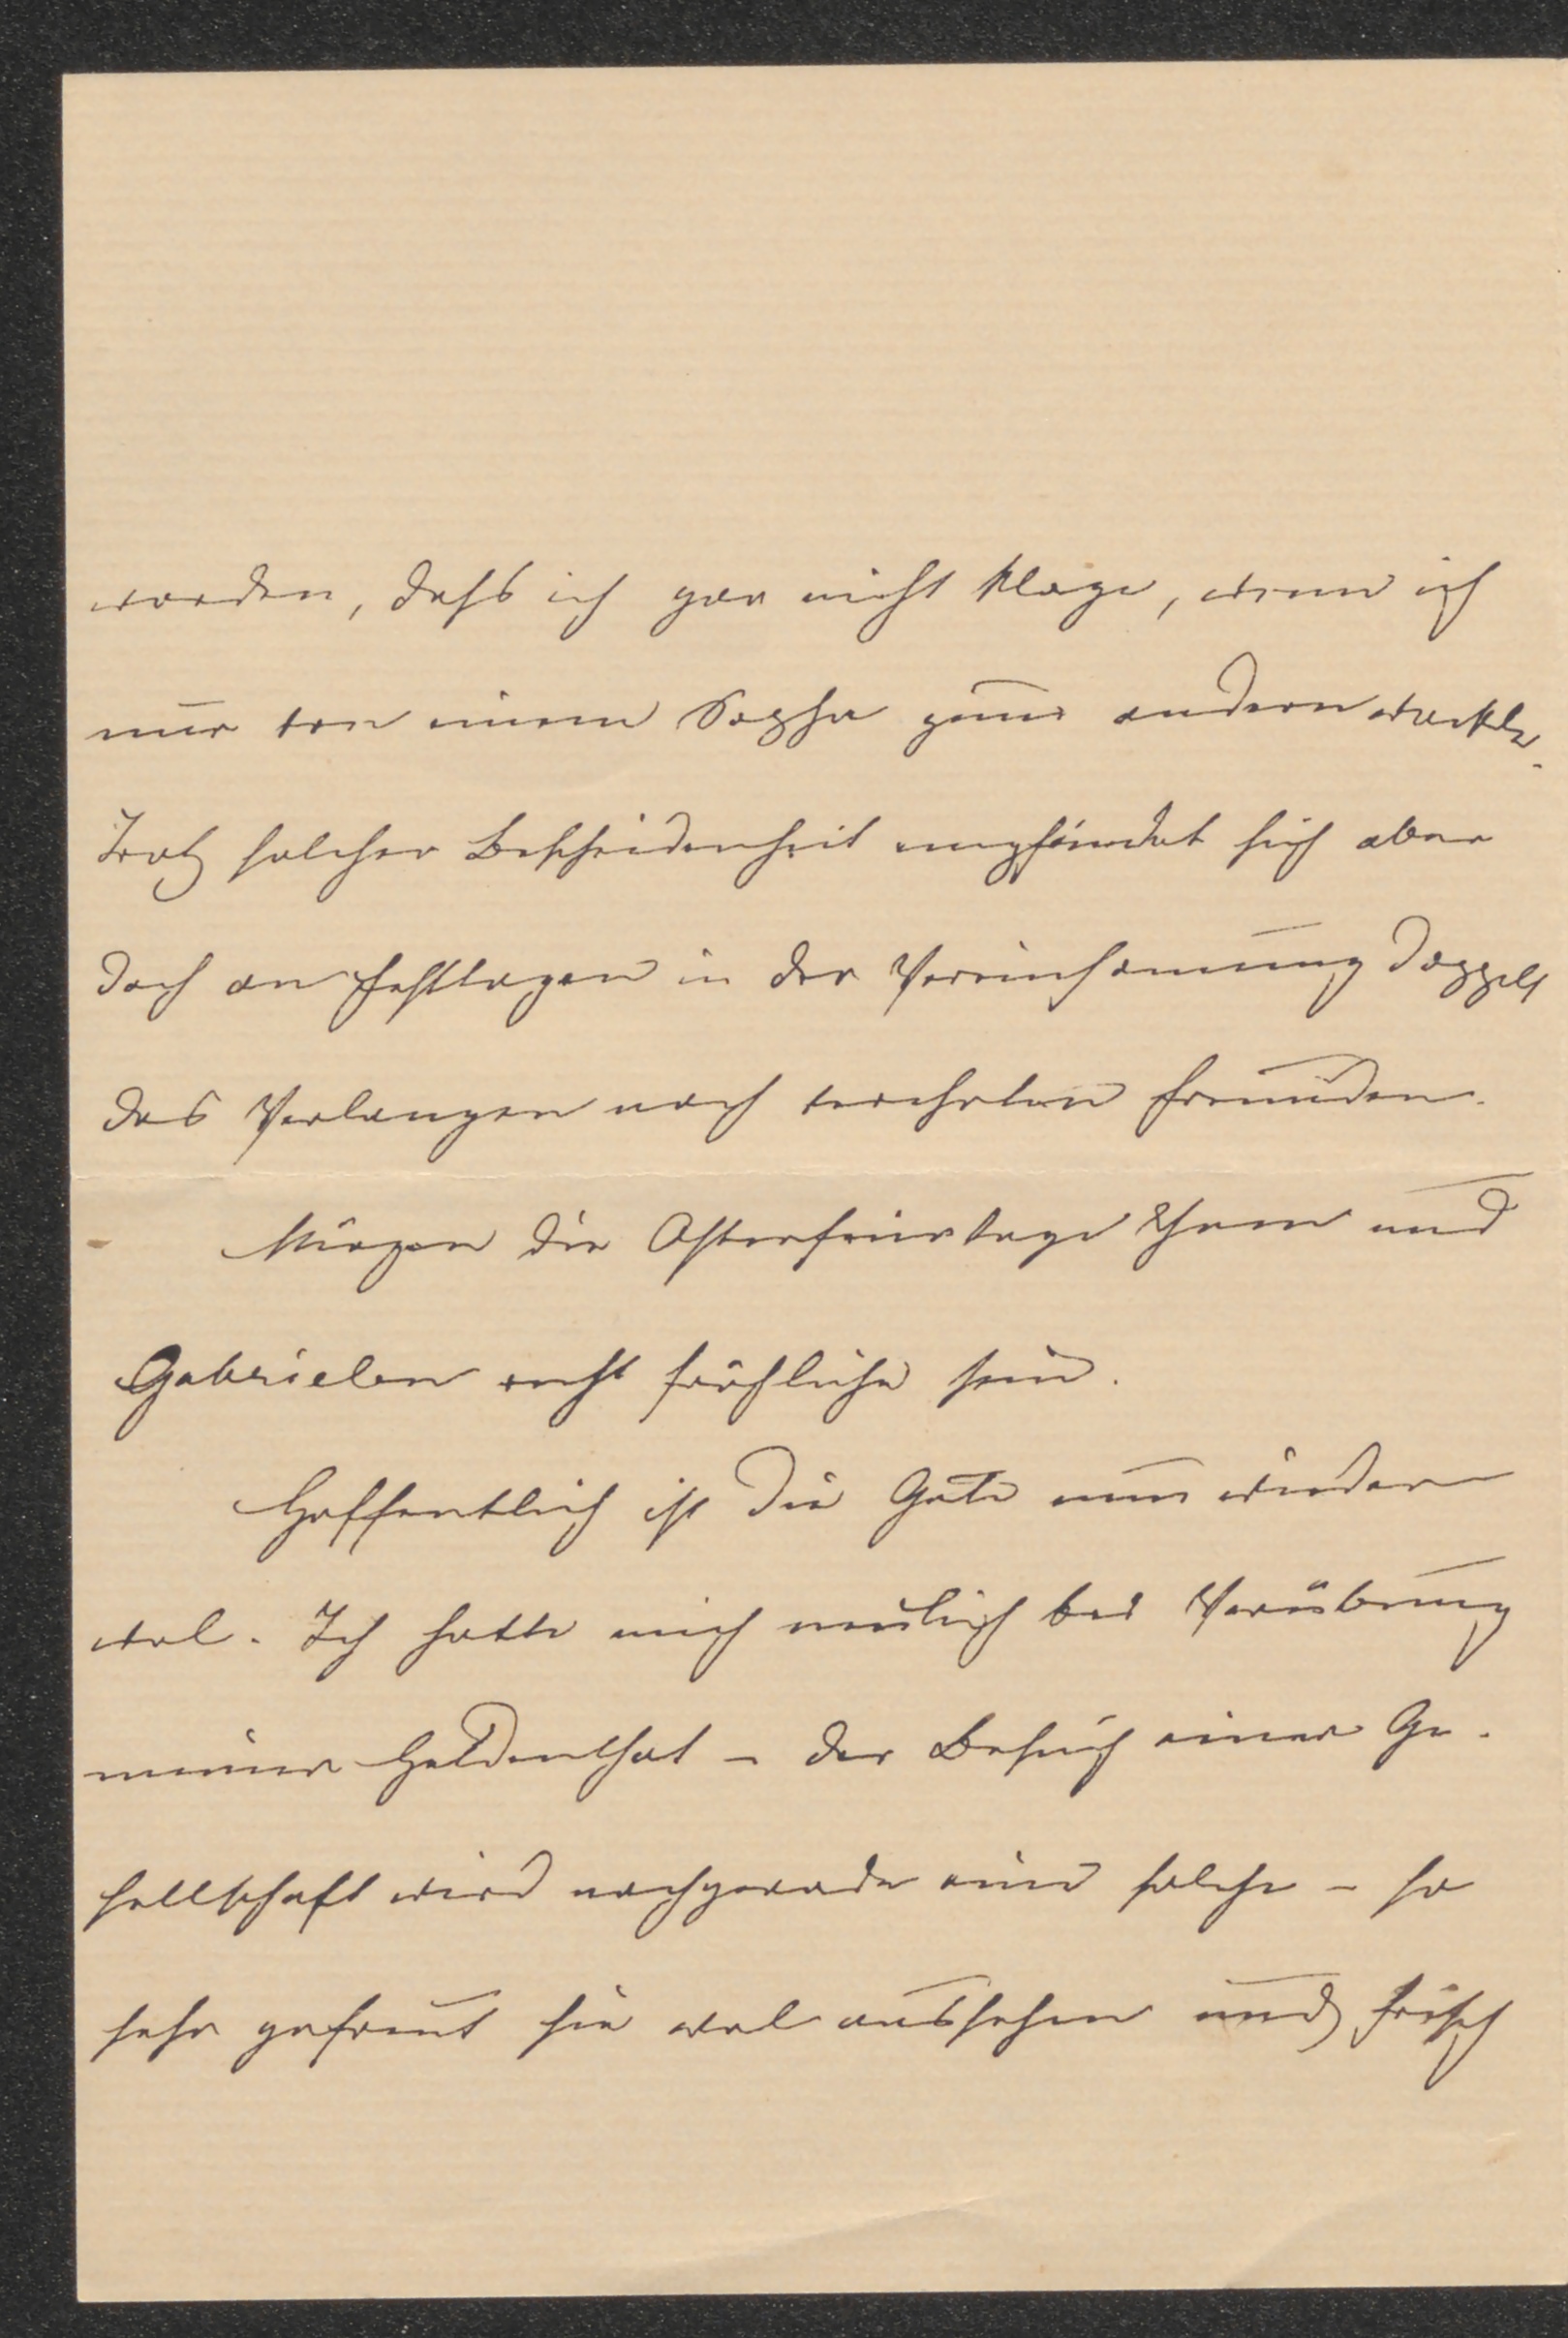 worden, daſs ich gar nicht klage, wenn ich
nur von einem Sopha zum andern wackle.
Trotz solcher Bescheidenheit empfindet sich aber
doch an Festtagen in der Vereinsamung doppelt
das Verlangen nach verehrten Freunden.
Mögen die Osterfeiertage Ihnen und
Gabrielen recht fröhliche sein.
Hoffentlich ist die Gute nun wieder
wol. Ich hatte mich neulich bei Verübung
meiner Heldenthat – der Besuch einer Ge-
sellschaft wird nachgerade eine solche – so
sehr gefreut sie wol aussehen und frisch